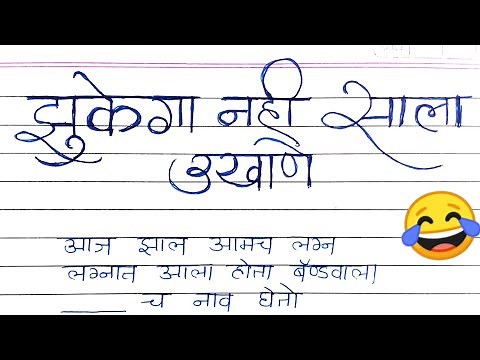 झुकेगा नही साला
उखाणे
आज झाल आमच लग्न
लग्नात आला होता बॅण्डवाला
____ च नाव घेतो